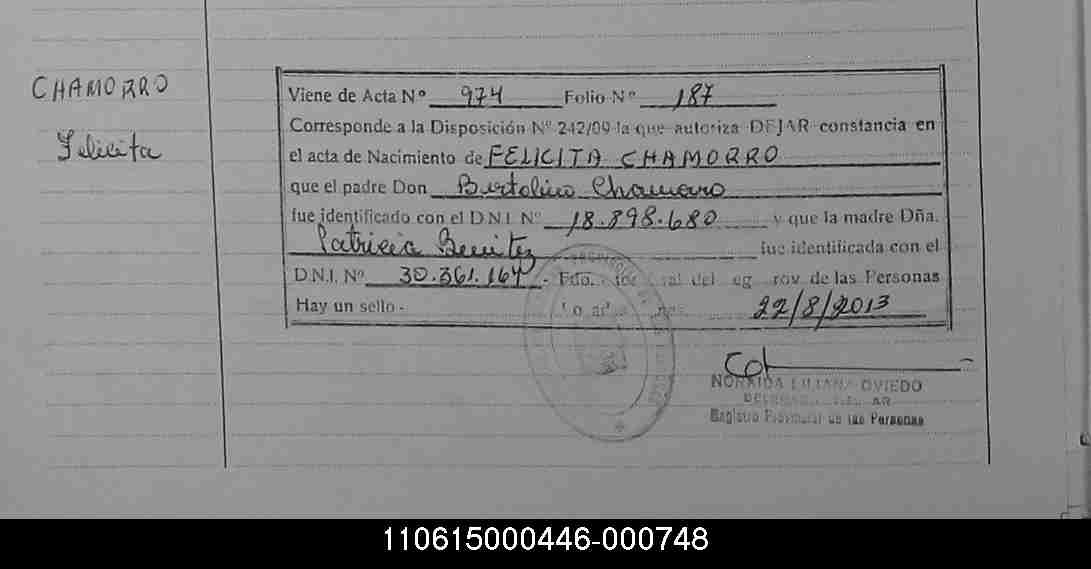 CHAMORRO
Felicita
Viene de Acta Nº 974 Folio Nº 187
Corresponde a la Disposición Nº 242/09 la que autoriza DEJAR constancia en
el acta de Nacimiento de FELICITA CHAMORRO
que el padre Don Bertolino Chamorro
fue identificado con el D.N.I. Nº 18.898.680 y que la madre Dña.
Patricia Benitez fue identificada con el
D.N.I. Nº 30.361.164.- Fdo. de las Personas
Hay un sello.- 22/8/2013
NORAIDA LILIANA OVIEDO
Registro Provincial de las Personas
110615000446-000748